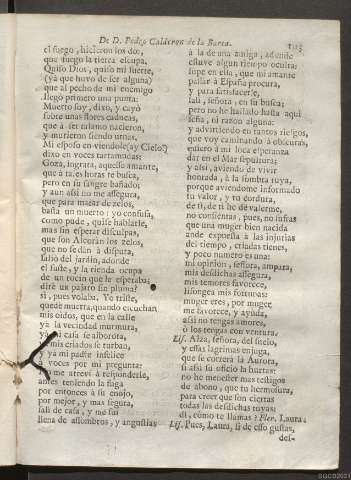 De D. Pedro Calderon de la Barca.
el fuego, hicieron los dos,
que fuego la tierra escupa.
Quiso Dios, quiso mi suerte,
(ya que huvo de ser alguna)
que al pecho de mi enemigo
llegò primero una punta:
Muerto soy, dixo, y cayò
sobre unas flores caducas,
que à ser talamo nacieron,
y murieron siendo urnas.
Mi esposo en viendole(ay Cielo!)
dixo en voces tartamudas:
Goza, ingrata, aquesse amante,
que à tales horas te busca,
pero en su sangre bañado:
y aun assi no me assegura,
que para matar de zelos,
basta un muerto: yo confusa,
como pude, quise hablarle,
mas sin esperar disculpas,
que son Alcorán los zelos,
que no se dàn à disputa,
saliò del jardin, adonde
el fuste, y la rienda ocupa
de un rocin que le esperaba:
dirè un pajaro sin pluma?
si, pues volaba. Yo triste,
quedè muerta, quando escuchan
mis oidos, que en la calle
ya la vecindad murmura,
ya mi casa se alborota,
mis criados le turban,
y ya mi padre infelice
à voces por mi pregunta:
me atrevi à responderle,
antes teniendo la fuga
por entonces à su enojo,
por mejor, y mas segura,
salí de casa, y me fui
llena de assombros, y angustias
à la de una amiga, adonde
estuve algun tiempo oculta:
supe en ella, que mi amante
passar à España procura,
y para satisfacerle,
sali, señora, en su busca;
pero no he hallado hasta aqui
seña, ni razon alguna:
y advirtiendo en tantos riesgos,
que voy caminando à obscuras,
quiero à mi loca esperanza
dar en el Mar sepultura;
y assi, aviendo de vivir
honrada, à la sombra tuya,
porque aviendome informado
tu valor, y tu cordura,
de ti, de ti he de valerme,
no consientas, pues, no sufras
que una muger bien nacida
ande expuesta à las injurias
del tiempo, criadas tienes,
y poco numero es una:
mi opinion, señora, ampara,
mis desdichas assegura,
mis temores favorece,
lisongea mis fortunas:
muger eres, por muger
me favorece, y ayuda,
assi no tengas amores,
ò los tengas con ventura.
Lis. Alza, señora, del suelo,
y essas lagrimas enjuga,
que se correrà la Aurora,
si assi su oficio la hurtas:
no he menester mas testigos
de abono, que tu hermosura,
para creer que son ciertas
todas las desdichas tuyas:
di, còmo te llamas? Flor. Laura.
Lis. Pues, Laura, si de esso gustas,
des-